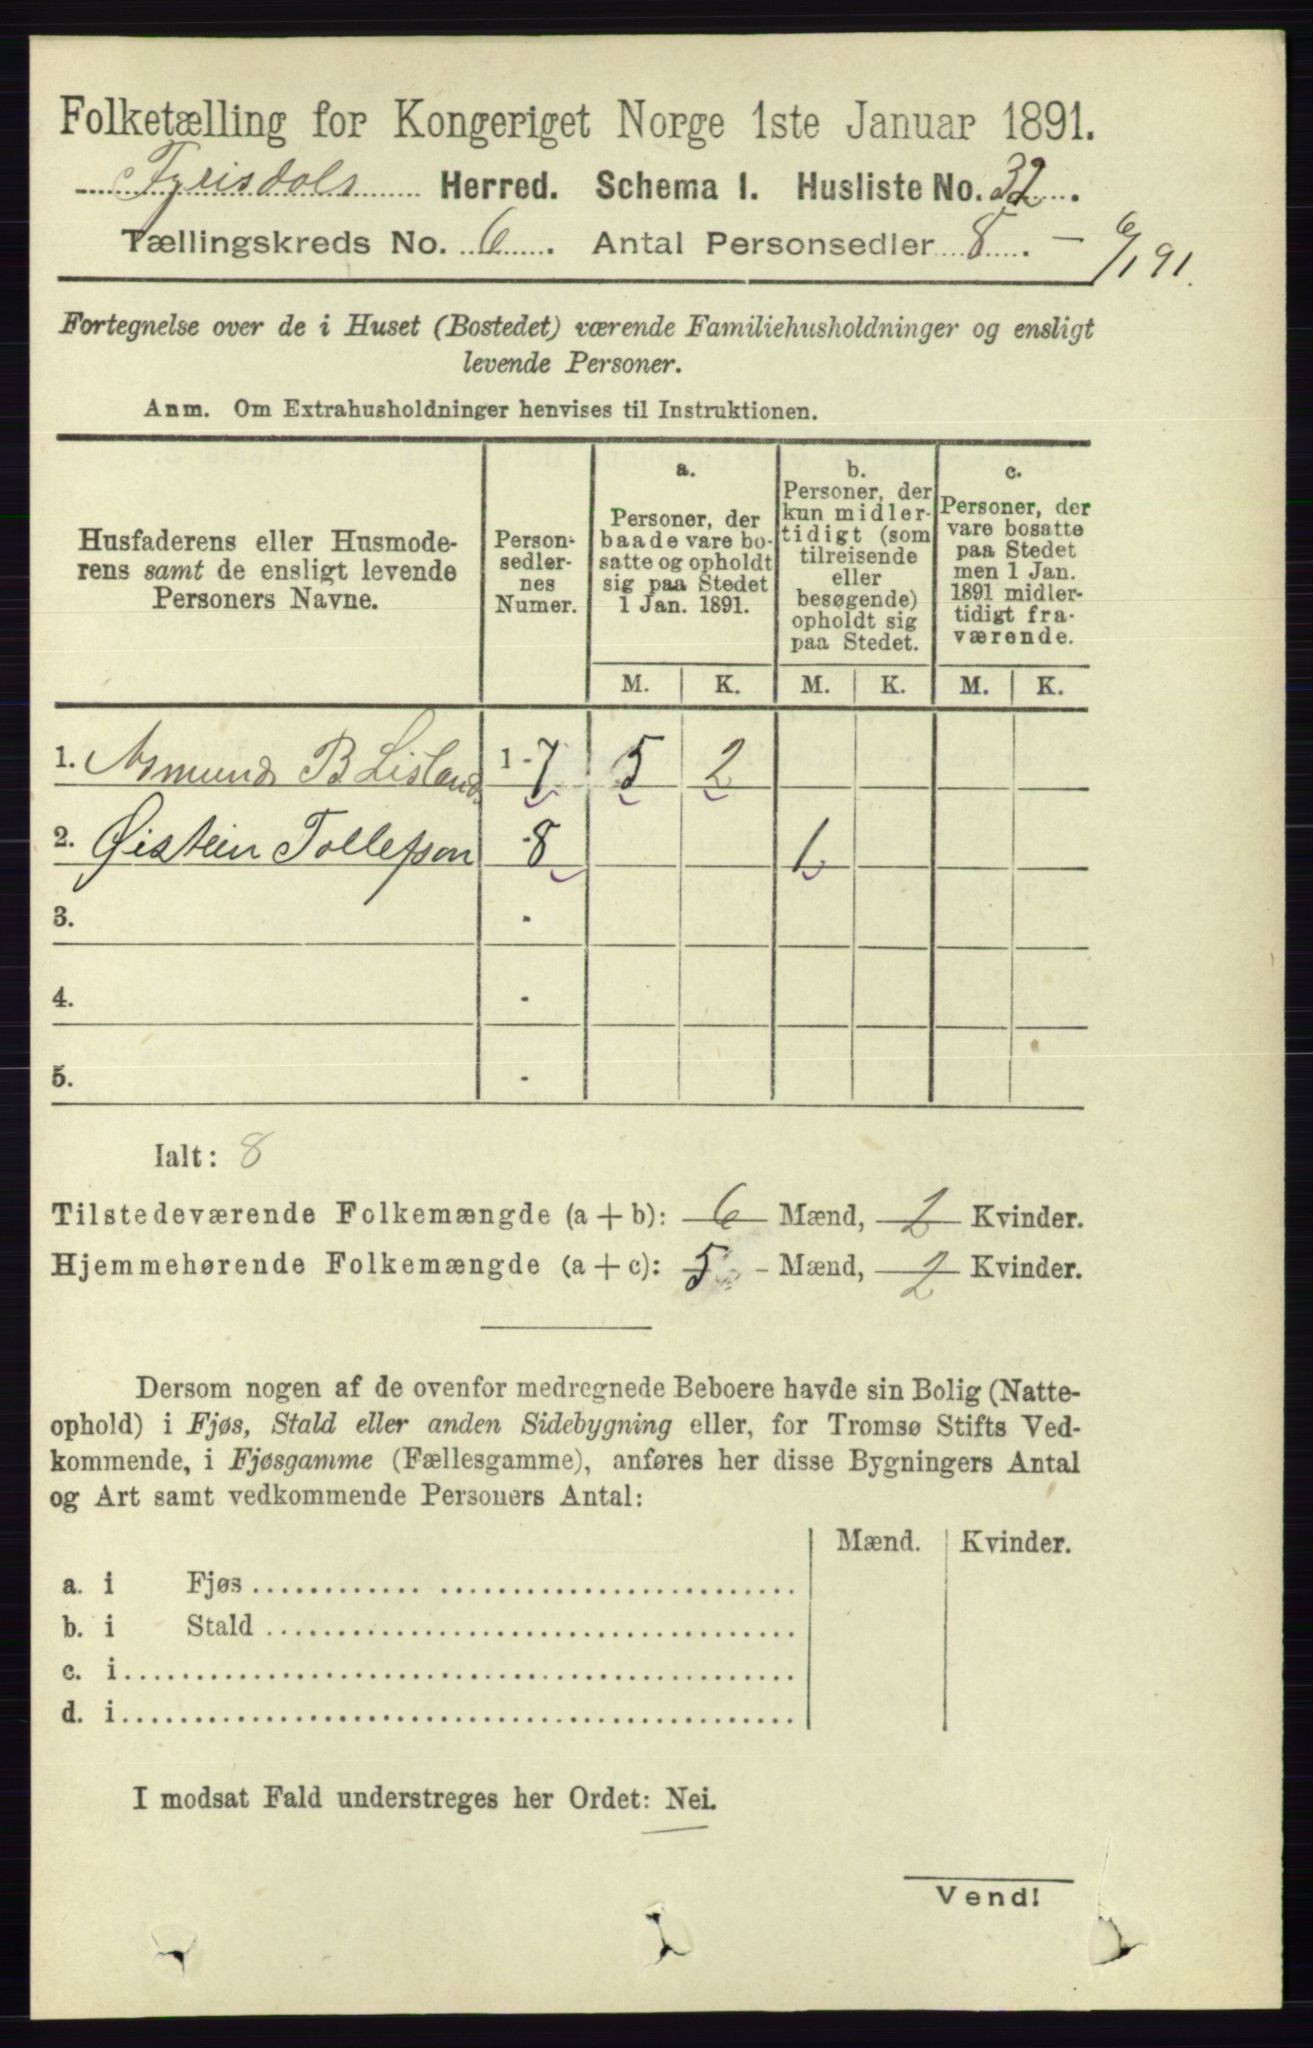 Folketælling for Kongeriget Norge 1ste Januar 1891.
Fyrisdals Herred. Schema 1. Husliste No. 32.
Tællingskreds No. 6. Antal Personsedler 8. – 6/1 91.
Fortegnelse over de i Huset (Bostedet) værende Familiehusholdninger og ensligt
levende Personer.
Anm. Om Extrahusholdninger henvises til Instruktionen.
Husfaderens eller Husmode-
rens samt de ensligt levende
Personers Navne.
Person-
sedler-
nes
Numer.
a.
Personer, der
baade vare bo-
satte og opholdt
sig paa Stedet
1 Jan. 1891.
b.
Personer, der
kun midler-
tidigt (som
tilreisende
eller
besøgende)
opholdt sig
paa Stedet.
c.
Personer, der
vare bosatte
paa Stedet
men 1 Jan.
1891 midler-
tidigt fra-
værende.
M. K. M. K. M. K.
1. Asmund B Lisland 1 - 7 5 2
2. Øistein Tollefson - 8 1
3. -
4. -
5. -
Ialt: 8
Tilstedeværende Folkemængde (a + b): 6 Mænd, 2 Kvinder.
Hjemmehørende Folkemængde (a + c): 5 Mænd, 2 Kvinder.
Dersom nogen af de ovenfor medregnede Beboere havde sin Bolig (Natte-
ophold) i Fjøs, Stald eller anden Sidebygning eller, for Tromsø Stifts Ved-
kommende, i Fjøsgamme (Fællesgamme), anføres her disse Bygningers Antal
og Art samt vedkommende Personers Antal:
Mænd. Kvinder.
a. i Fjøs
b. i Stald
c. i
d. i
I modsat Fald understreges her Ordet: Nei.
Vend!